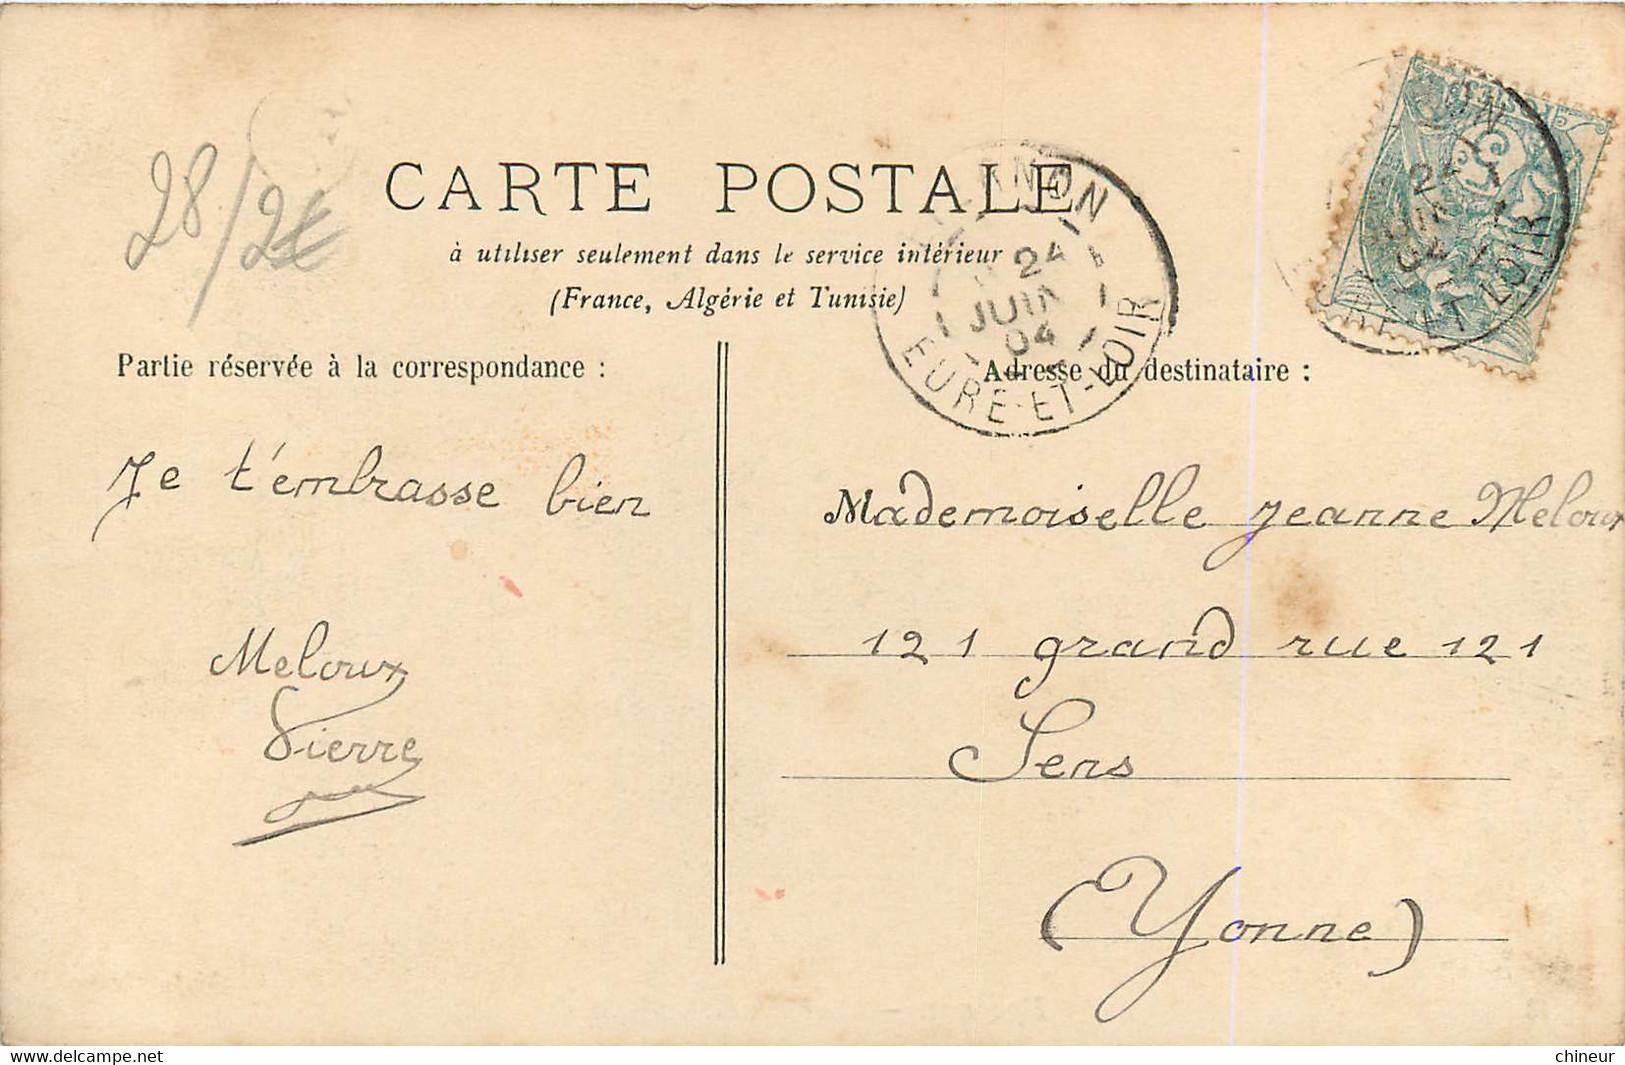 28/2€
CARTE POSTALE
à utiliser seulement dans le service intérieur
(France, Algérie et Tunisie)
24
JUIN
04
EURE-ET-LOIR
24
JUIN
04
EURE-ET-LOIR
Partie réservée à la correspondance :
Je t'embrasse bien
Meloux
Pierre
Adresse du destinataire :
Mademoiselle Jeanne Meloux
121 grand rue 121
Sens
(Yonne)
www.delcampe.net
chineur